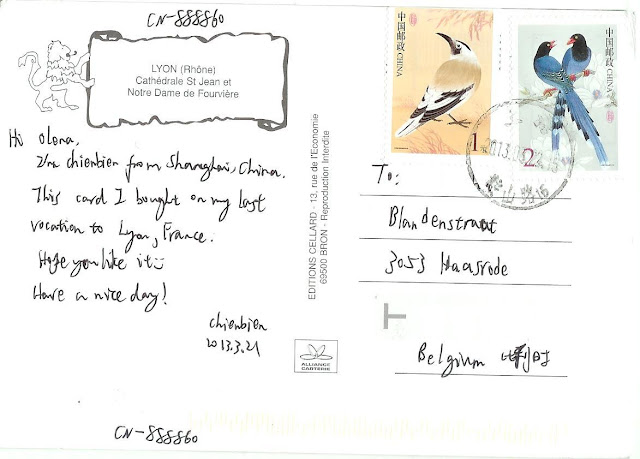 CN-888860
LYON (Rhône)
Cathédrale St Jean et
Notre Dame de Fourvière
Hi Olena,
I'm chienbien from Shanghai, China.
This card I bought on my last
vocation to Lyon, France.
Hope you like it
Have a nice day!
chienbien
2013.3.21
CN-888860
EDITIONS CELLARD - 13, rue de l'Economie
69500 BRON - Reproduction Interdite
ALLIANCE
CARTERIE
中国邮政 CHINA
1
中国邮政 CHINA
2
2013.0
山路
To:
Blandenstraat
3053 Haasrode
Belgium 比利时